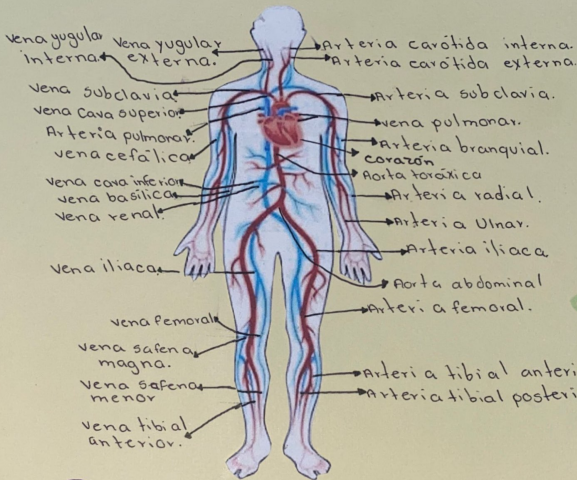 vena yugular
interna.
Vena yugular
externa.
vena subclavia
vena cava superior
Arteria pulmonar.
vena cefálica
vena cava inferior
vena basilica
vena renal.
vena iliaca
vena femoral
vena safena
magna.
vena safena
menor
vena tibial
anterior.
Arteria carótida interna.
Arteria carótida externa.
Arteria subclavia.
vena pulmonar.
Arteria branquial.
corazón
Aorta toráxica
Arteria radial.
Arteria Ulnar.
Arteria iliaca
Aorta abdominal
Arteria femoral.
Arteria tibial anteri
Arteria tibial posteri